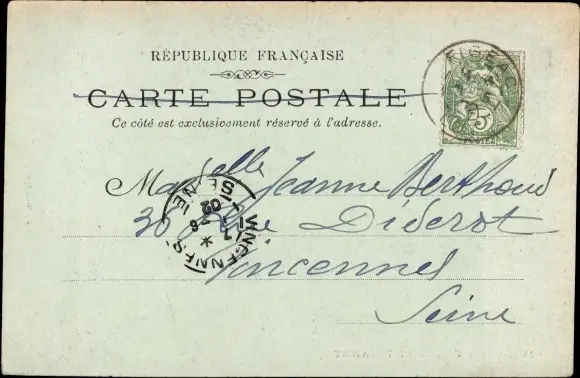 RÉPUBLIQUE FRANÇAISE
CARTE POSTALE
Ce côté est exclusivement réservé à l'adresse.
FIGEAC
5
POSTES
Mademoiselle Jeanne Berthoud
36 Rue Diderot
Vincennes
Seine
VINCENNES
SEINE
02